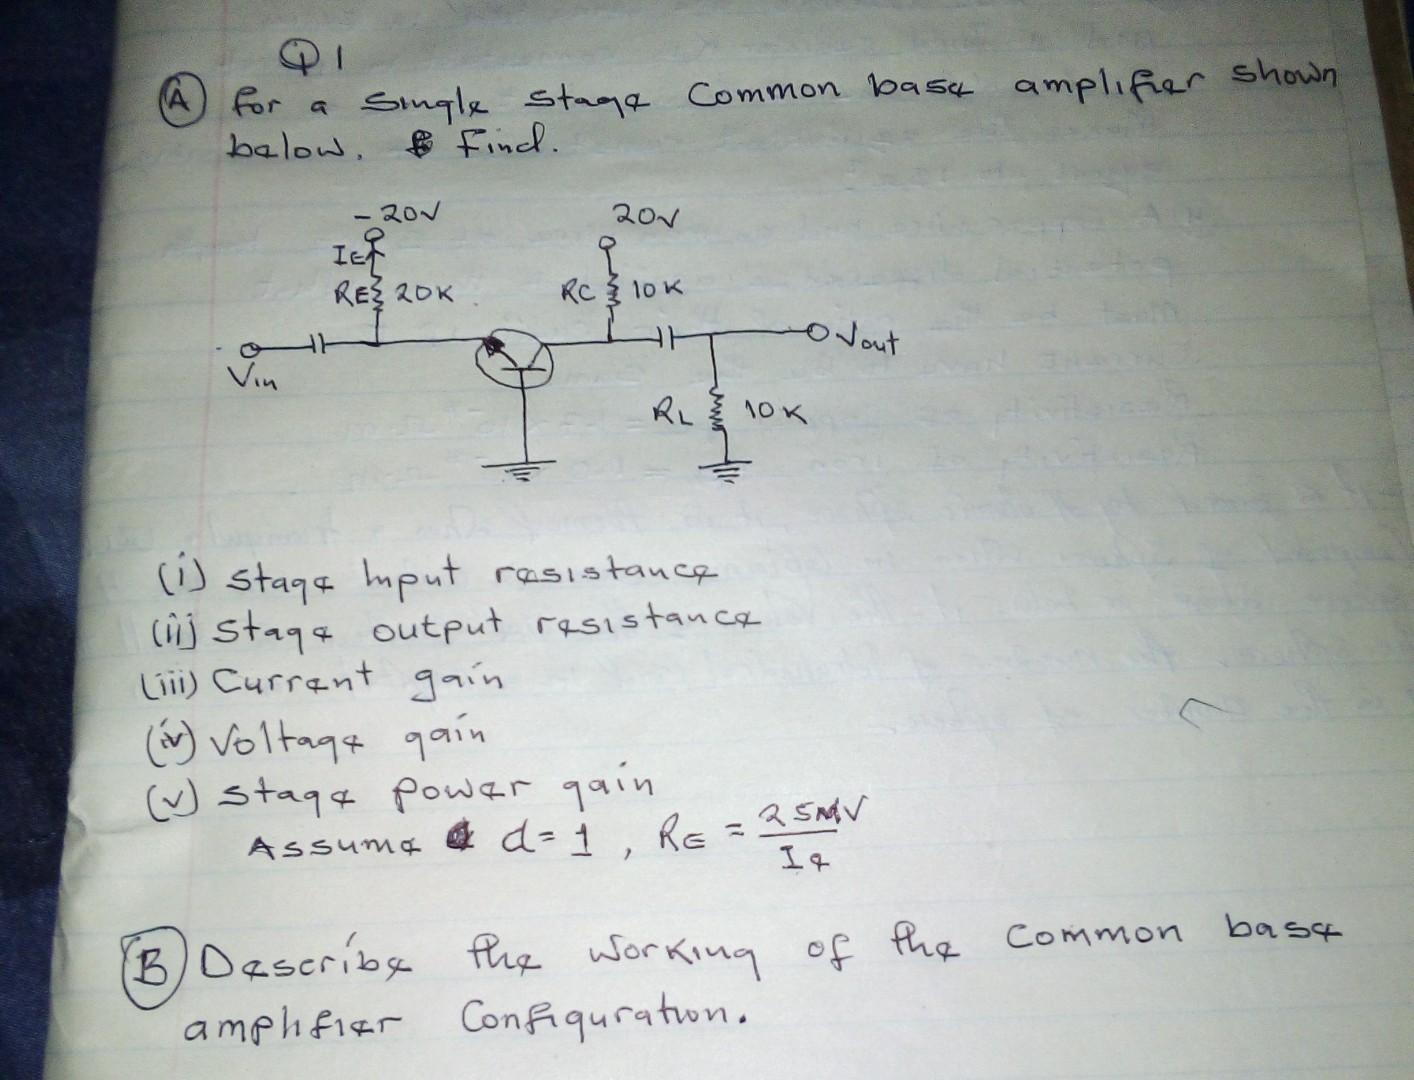 Q1
(A) for a single stage common base amplifier shown
below. Find.
-20V
20V
IE
RE 20K
RC 10K
Vin
Vout
RL 10K
(i) Stage Input resistance
(ii) Stage output resistance
(iii) Current gain
(iv) Voltage gain
(v) Stage power gain
Assume d=1, RE = 25MV
Ie
(B) Describe the working of the common base
amplifier Configuration.